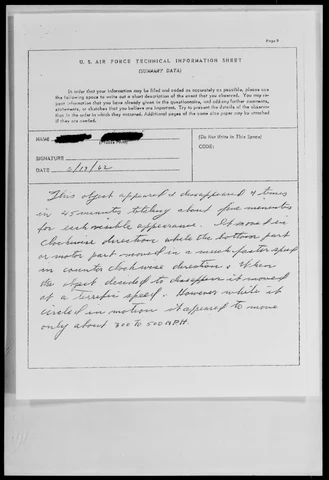 Page 8
U. S. AIR FORCE TECHNICAL INFORMATION SHEET
(SUMMARY DATA)
In order that your information may be filed and coded as accurately as possible, please use
the following space to write out a short description of the event that you observed. You may re-
peat information that you have already given in the questionnaire, and add any further comments,
statements, or sketches that you believe are important. Try to present the details of the observa-
tion in the order in which they occurred. Additional pages of the same size paper may be attached
if they are needed.
NAME
(Please Print)
(Do Not Write in This Space)
CODE:
SIGNATURE
DATE /13/62
This object appeared & disappeared 4 times
in 45 minutes totaling about five minutes
for each visible appearance. It moved in
clockwise direction while the bottom part
or motor part moved in a much faster speed
in counter clockwise direction. When
the object decided to disappear it moved
at a terrific speed. However while it
circled in motion it appeared to move
only about 300 to 500 MPH.